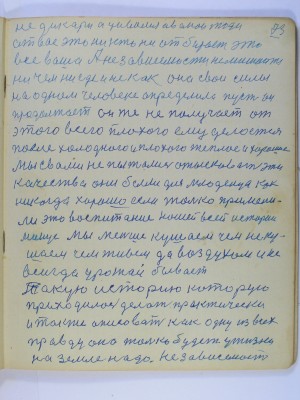 не дикари а цивилизованой люди
от вас это никто ни отбирает это
все ваша А независемости ни мишают
ни чем нигде не как она свои силы
на одном человеке определила пусть он
продолжает он же не получает от
этого всего плохого ему достоится
после холодного и плохого теплое и хорошее
Мы с вами не пытались отыскивать эти
качества они были для младенца как
никогда хорошо если только примени-
ли это воспитание нашей всей истории
мы меньше кушаем чем не ку-
шаем чем живем да воздухом и не
всегда урожай бывает
Такую историю которую
приходилось делать практически
и также описовать как одну из всех
правду она только будет у жизни
на земле надо. Независемость